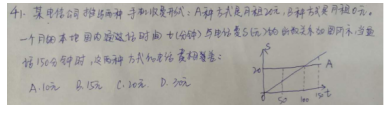 41. 某电信公司推出两种手机收费方式：A种方式是月租20元，B种方式是月租0元。
一个月的本地网内通话时间t(分钟)与电话费S(元)的函数关系如图所示，当通
话150分钟时，这两种方式的电话费相差
A.10元 B.15元 C.20元 D.30元
S
20
A
50 100 150 t